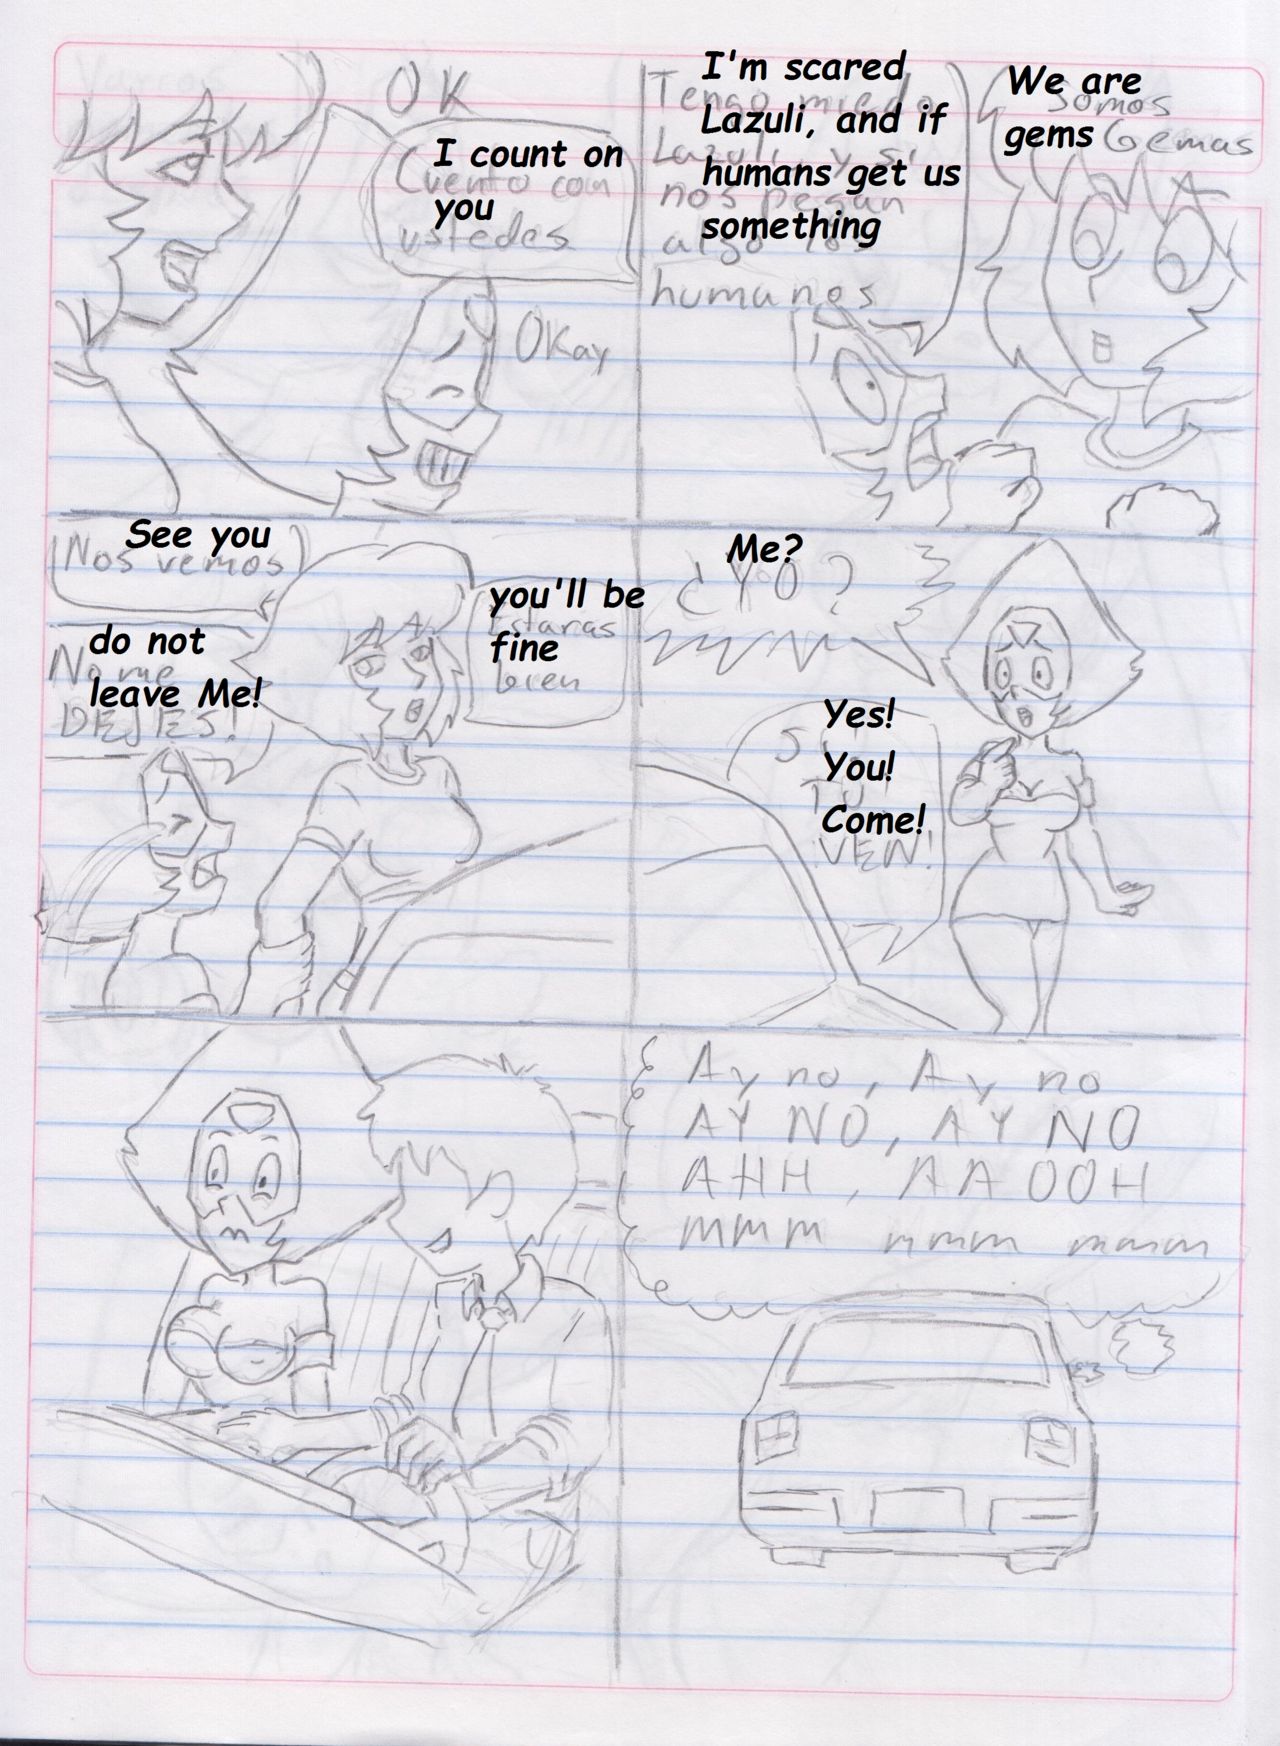 OK
I count on
you
Cuento con
ustedes
Okay
I'm scared
Lazuli, and if
humans get us
something
Tengo miedo
Lazuli, y si
nos pegan
algo los
humanos
We are
gems
Somos
Gemas
See you
Nos vemos
do not
leave Me!
No me
DEJES!
you'll be
fine
Estaras
bien
Me?
¿YO?
Yes!
You!
Come!
TU!
VEN!
Ay no, Ay no
AY NO, AY NO
AHH, AA OOH
mmm mmm mmmm